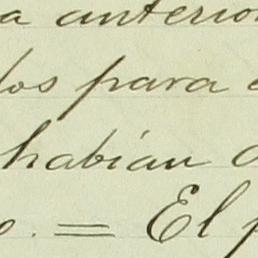 a anterior
dos para
habían
. = El